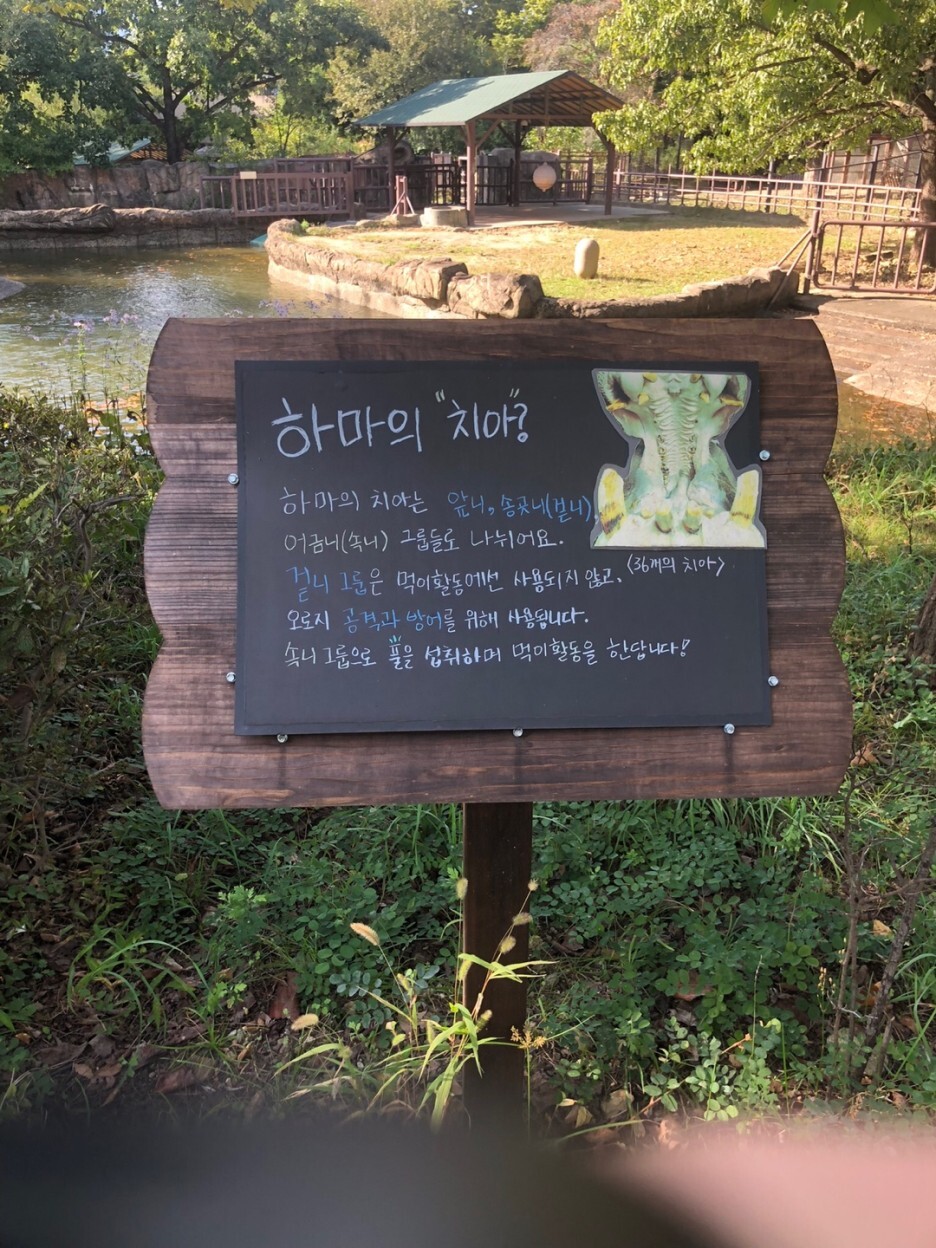 하마의 "치아"?
하마의 치아는 앞니, 송곳니(겉니)
어금니(속니) 그룹들로 나뉘어요.
<36개의 치아>
겉니 그룹은 먹이활동에선 사용되지 않고,
오로지 공격과 방어를 위해 사용됩니다.
속니 그룹으로 풀을 섭취하며 먹이활동을 한답니다!